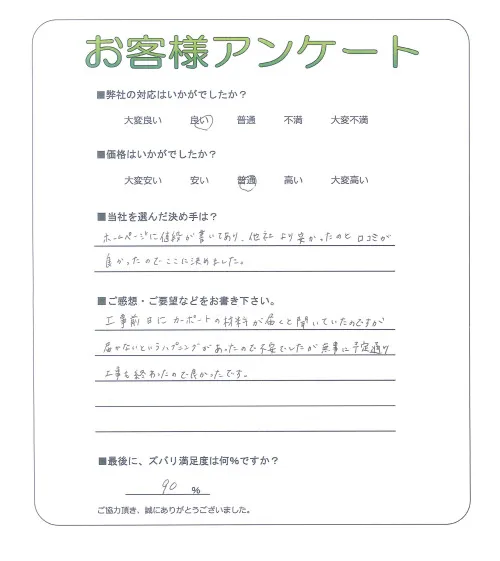 お客様アンケート
■弊社の対応はいかがでしたか？
大変良い 良い 普通 不満 大変不満
■価格はいかがでしたか？
大変安い 安い 普通 高い 大変高い
■当社を選んだ決め手は？
ホームページに値段が書いてあり、他社より安かったのと口コミが
良かったのでここに決めました。
■ご感想・ご要望などをお書き下さい。
工事前日にカーポートの材料が届くと聞いていたのですが
届かないというハプニングがあったので不安でしたが無事に予定通り
工事も終わったので良かったです。
■最後に、ズバリ満足度は何％ですか？
90 %
ご協力頂き、誠にありがとうございました。